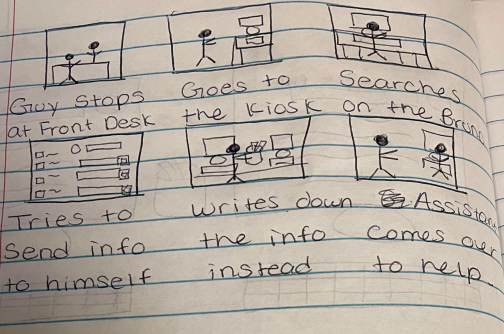 Guy Stops
at Front Desk
Goes to
the Kiosk
Searches
on the
Tries to
Send info
to himself
writes down
the info
instead
comes over
to help.